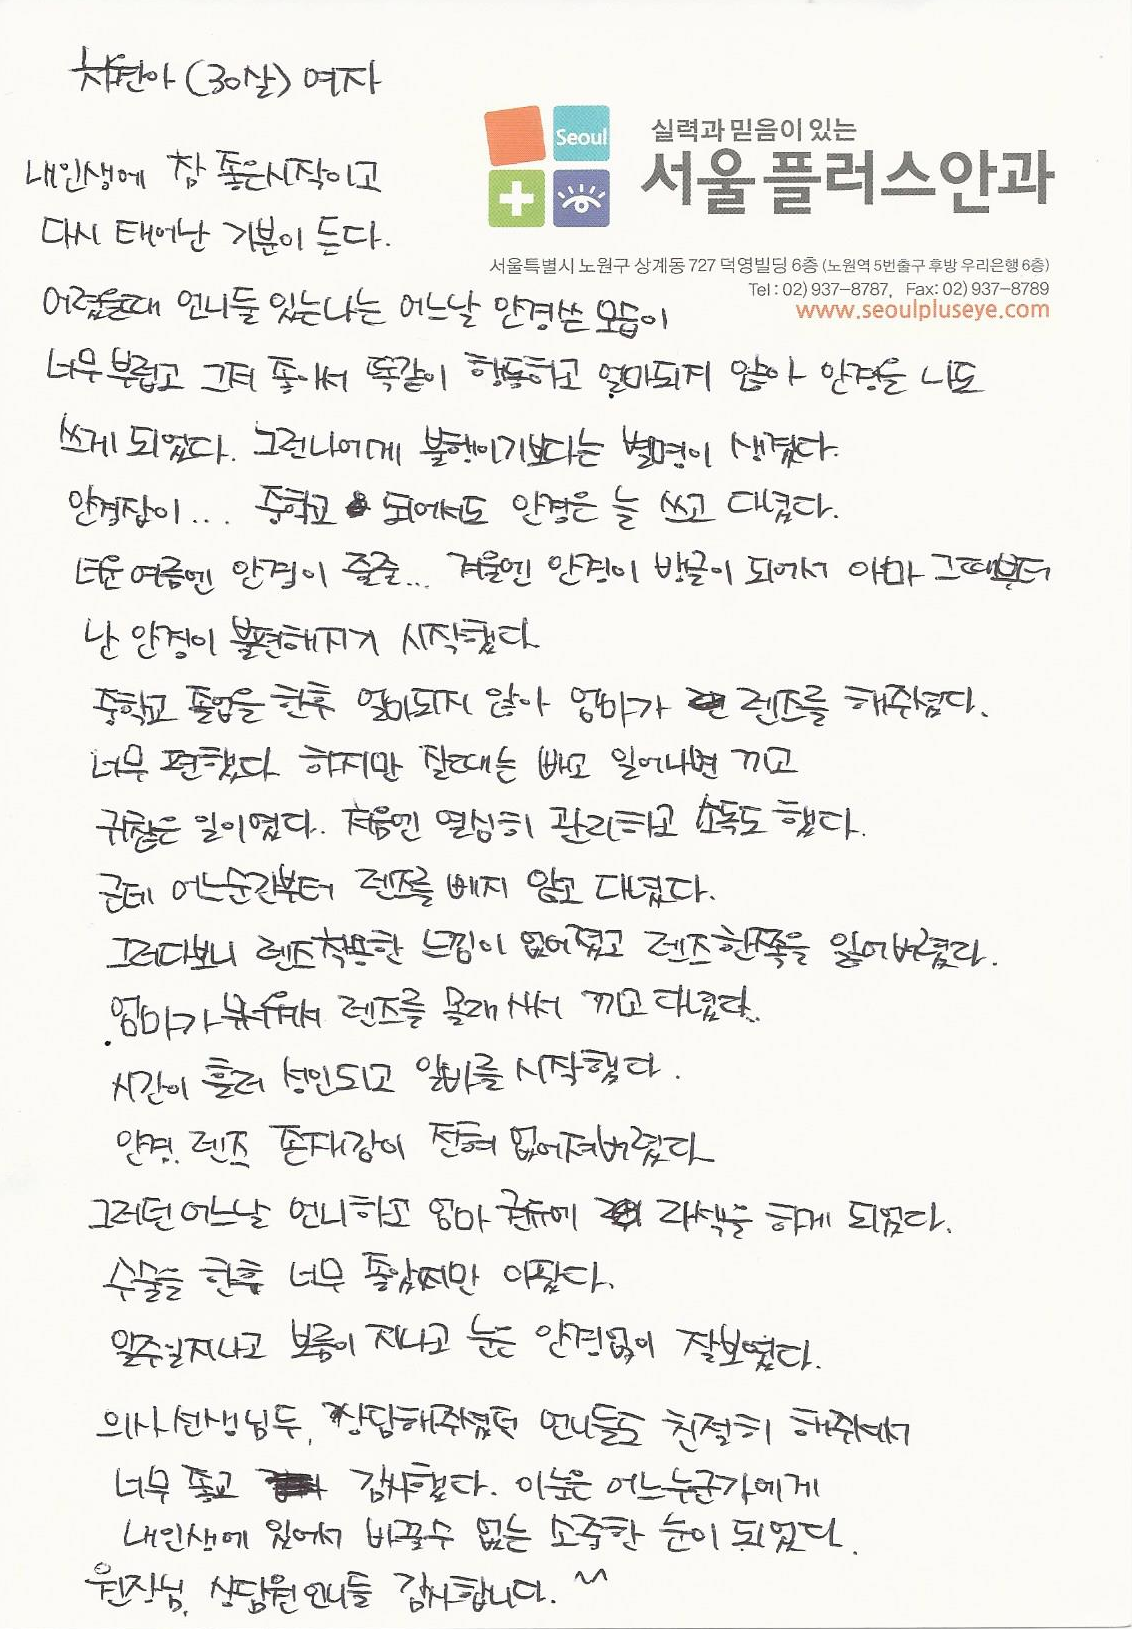 (30살) 여자
Seoul
실력과 믿음이 있는
서울플러스안과
서울특별시 노원구 상계동 727 덕영빌딩 6층 (노원역 5번출구 후방 우리은행 6층)
Tel : 02) 937-8787, Fax : 02) 937-8789
www.seoulpluseye.com
내인생에 참 좋은시작이고
다시 태어난 기분이 든다.
어렸을때 언니들 있는나는 어느날 안경쓴 모습이
너무 부럽고 그저 좋아서 똑같이 행동하고 얼마되지 않아 안경을 나도
쓰게 되었다. 그런나에게 불행이기보다는 별명이 생겼다.
안경잡이... 중학교 되어서도 안경은 늘 쓰고 다녔다.
더운 여름엔 안경이 줄줄... 겨울엔 안경이 뱅글이 되어서 아마 그때부터
난 안경이 불편해지기 시작했다
중학교 졸업을 한후 얼마되지 않아 엄마가 렌즈를 해주셨다.
너무 편했다 하지만 잘때는 빠고 일어나면 끼고
귀찮은 일이였다. 처음엔 열심히 관리하고 소독도 했다.
근데 어느순간부터 렌즈를 빼지 않고 다녔다.
그러다보니 렌즈착용한 느낌이 없어졌고 렌즈한쪽을 잃어버렸다.
엄마가 렌즈를 몰래 사서 끼고 다녔다.
시간이 흘러 성인되고 알바를 시작했다.
안경, 렌즈 존재감이 전혀 없어져버렸다
그러던 어느날 언니하고 엄마 권유에 라섹을 하게 되었다.
수술을 한후 너무 좋았지만 아팠다.
일주일지나고 보름이 지나고 눈은 안경없이 잘보였다.
의사선생님두, 상담해주셨던 언니들도 친절히 해줘서
너무 좋고 감사했다. 이눈은 어느누군가에게
내인생에 있어서 바꿀수 없는 소중한 눈이 되었다.
원장님, 상담원언니들 감사합니다. ^^